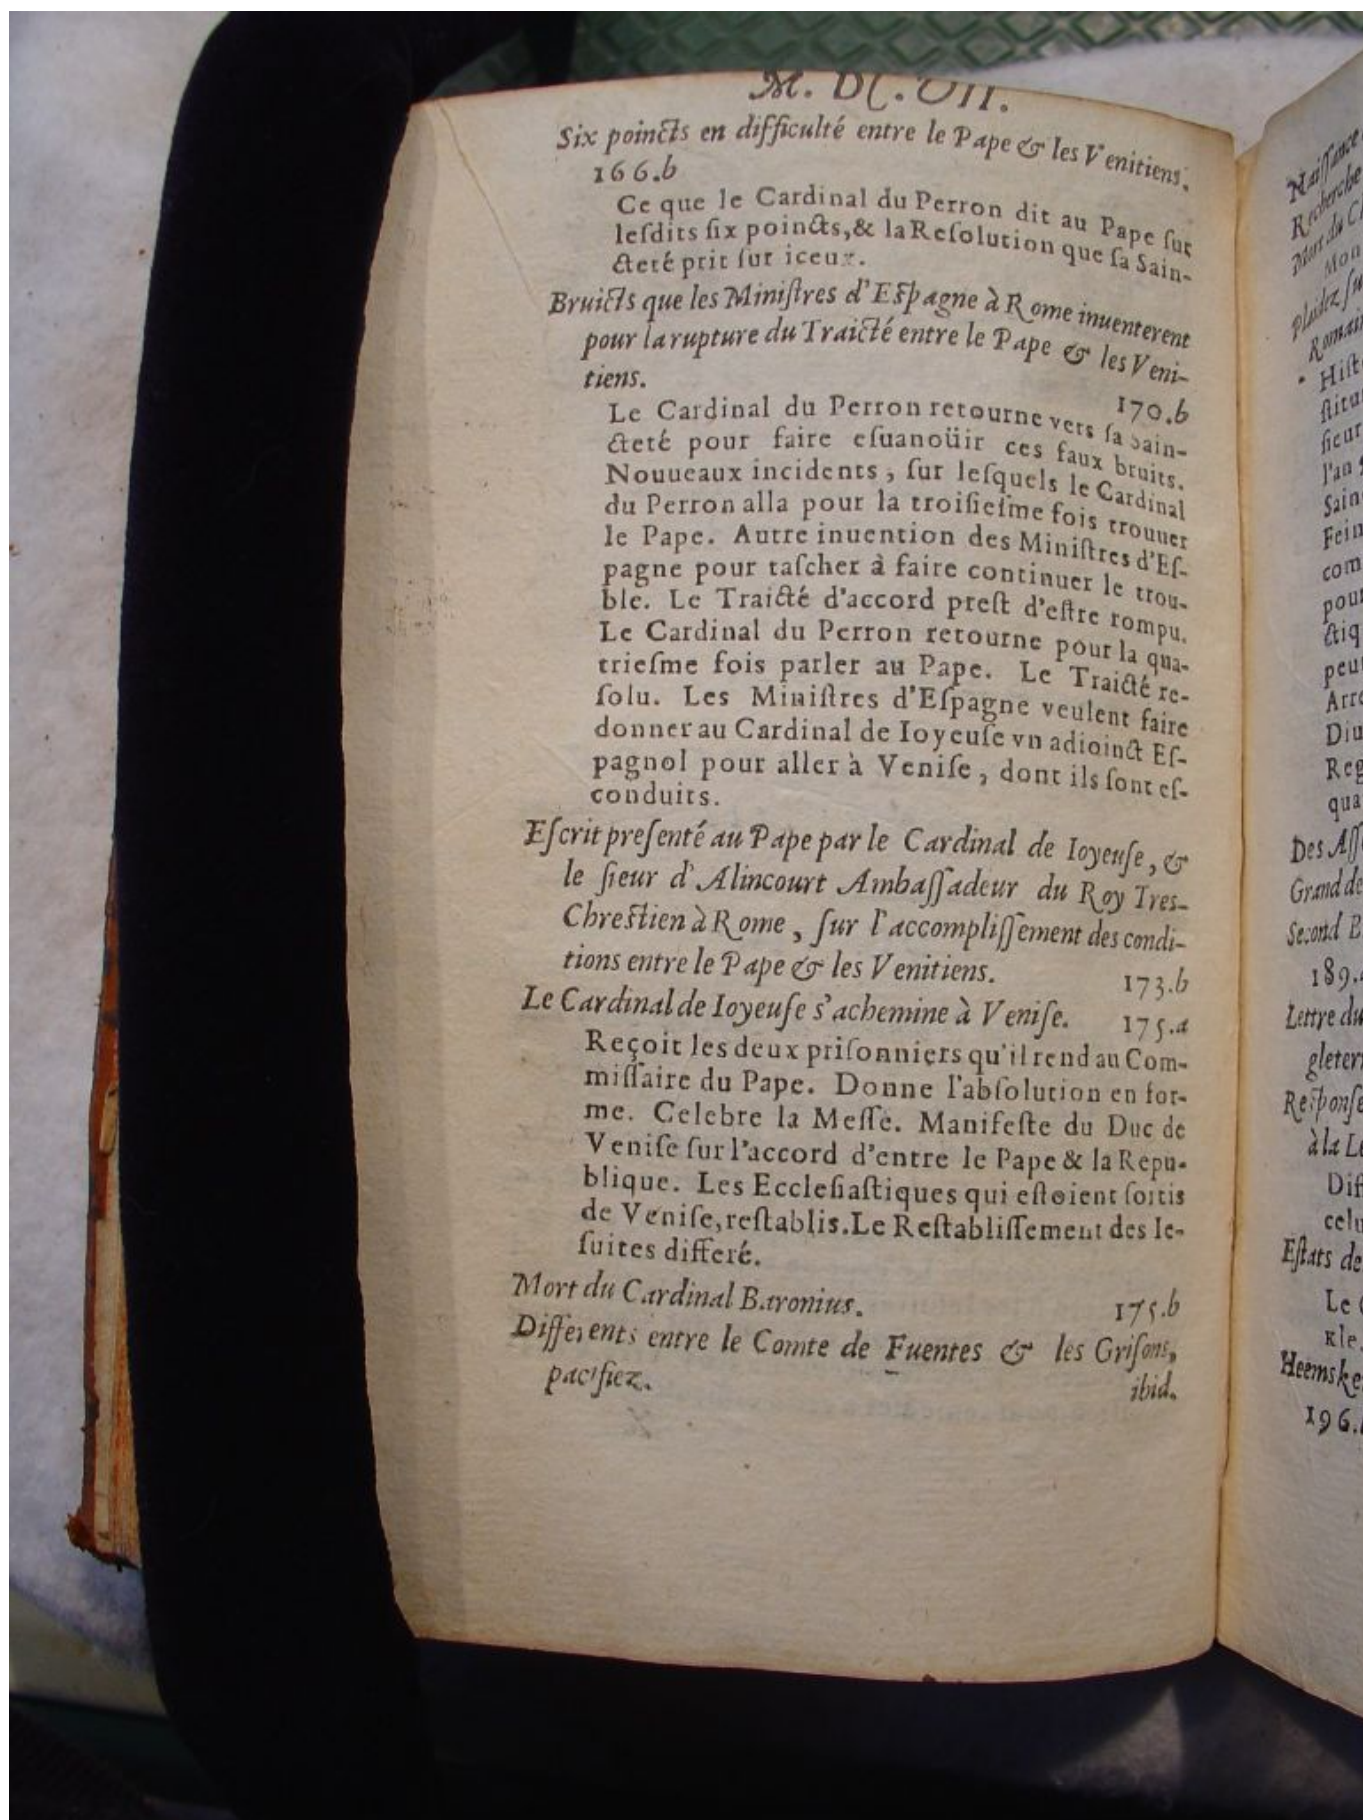 M. DC. VII.
Six poincts en difficulté entre le Pape & les Venitiens.
166.b
Ce que le Cardinal du Perron dit au Pape sur
lesdits six poincts, & la Resolution que sa Sain-
cteté prit sur iceux.
Bruicts que les Ministres d'Espagne à Rome inuenterent
pour la rupture du Traicté entre le Pape & les Veni-
tiens. 170.b
Le Cardinal du Perron retourne vers sa Sain-
cteté pour faire esuanoüir ces faux bruits.
Nouueaux incidents, sur lesquels le Cardinal
du Perron alla pour la troisiesme fois trouuer
le Pape. Autre inuention des Ministres d'Es-
pagne pour tascher à faire continuer le trou-
ble. Le Traicté d'accord prest d'estre rompu.
Le Cardinal du Perron retourne pour la qua-
triesme fois parler au Pape. Le Traicté re-
solu. Les Ministres d'Espagne veulent faire
donner au Cardinal de Ioyeuse vn adioinct Es-
pagnol pour aller à Venise, dont ils sont es-
conduits.
Escrit presenté au Pape par le Cardinal de Ioyeuse, &
le sieur d'Alincourt Ambassadeur du Roy Tres-
Chrestien à Rome, sur l'accomplissement des condi-
tions entre le Pape & les Venitiens. 173.b
Le Cardinal de Ioyeuse s'achemine à Venise. 175.a
Reçoit les deux prisonniers qu'il rend au Com-
missaire du Pape. Donne l'absolution en for-
me. Celebre la Messe. Manifeste du Duc de
Venise sur l'accord d'entre le Pape & la Repu-
blique. Les Ecclesiastiques qui estoient sortis
de Venise, restablis. Le Restablissement des Ie-
suites differé.
Mort du Cardinal Baronius. 175.b
Differents entre le Comte de Fuentes & les Grisons,
pacifiez. ibid.
Naissance
Recherche
Mort du C
Mon
Plaidez su
Romain
Hist
stitu
sieur
l'an
Sain
Fein
com
pour
ctiq
peu
Arre
Diu
Reg
qua
Des Ass
Grand de
Second B
189.
Lettre du
gleter
Response
à la Le
Dif
celu
Estats de
Le
Kle
Heemske
196.